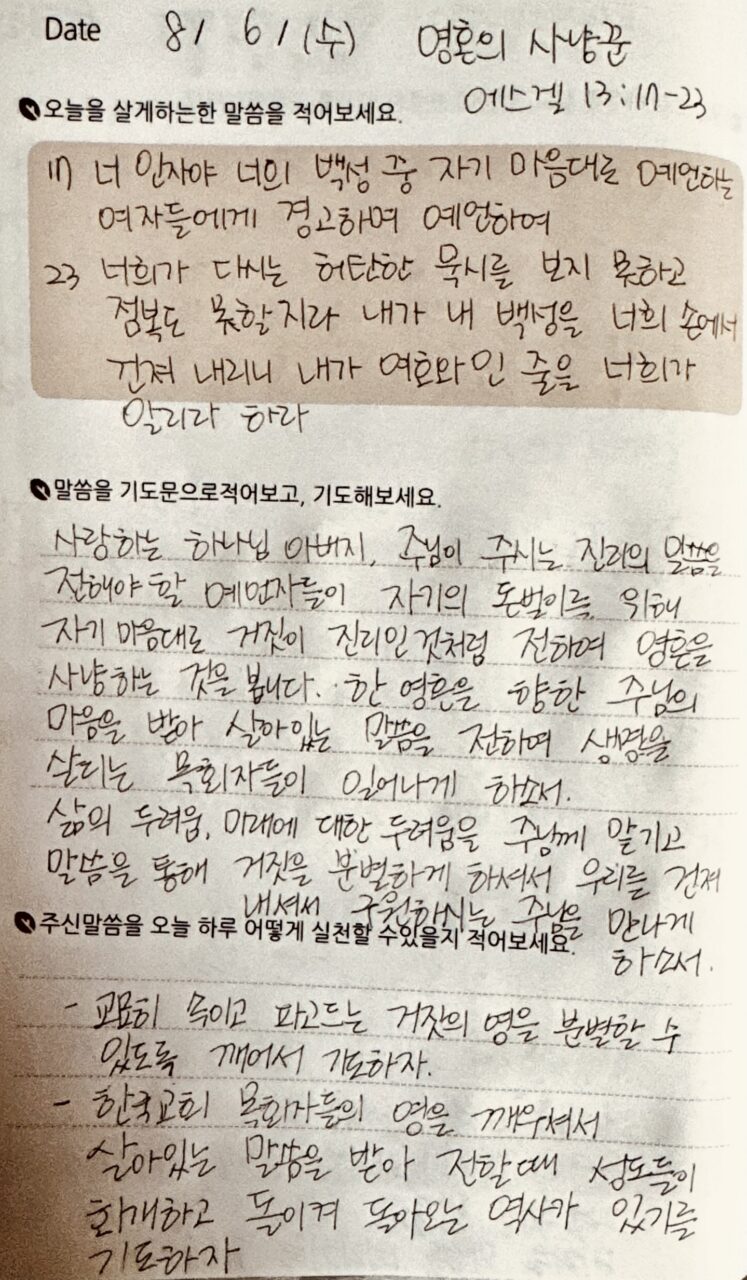 Date 8/ 6/ (수) 영혼의 사냥꾼
에스겔 13:17-23
오늘을 살게하는한 말씀을 적어보세요.
17 너 인자야 너의 백성 중 자기 마음대로 예언하는
여자들에게 경고하며 예언하여
23 너희가 다시는 허탄한 묵시를 보지 못하고
점복도 못할지라 내가 내 백성을 너희 손에서
건져 내리니 내가 여호와인 줄을 너희가
알리라 하라
말씀을 기도문으로적어보고, 기도해보세요.
사랑하는 하나님 아버지, 주님이 주시는 진리의 말씀을
전해야 할 예언자들이 자기의 돈벌이를 위해
자기 마음대로 거짓이 진리인것처럼 전하며 영혼을
사냥하는 것을 봅니다. 한 영혼을 향한 주님의
마음을 받아 살아있는 말씀을 전하여 생명을
살리는 목회자들이 일어나게 하소서.
삶의 두려움, 미래에 대한 두려움을 주님께 맡기고
말씀을 통해 거짓을 분별하게 하셔서 우리를 건져
내셔서 구원하시는 주님을 만나게
하소서.
주신말씀을 오늘 하루 어떻게 실천할 수있을지 적어보세요.
- 교묘히 속이고 파고드는 거짓의 영을 분별할 수
있도록 깨어서 기도하자.
- 한국교회 목회자들의 영을 깨우셔서
살아있는 말씀을 받아 전할때 성도들이
회개하고 돌이켜 돌아오는 역사가 있기를
기도하자